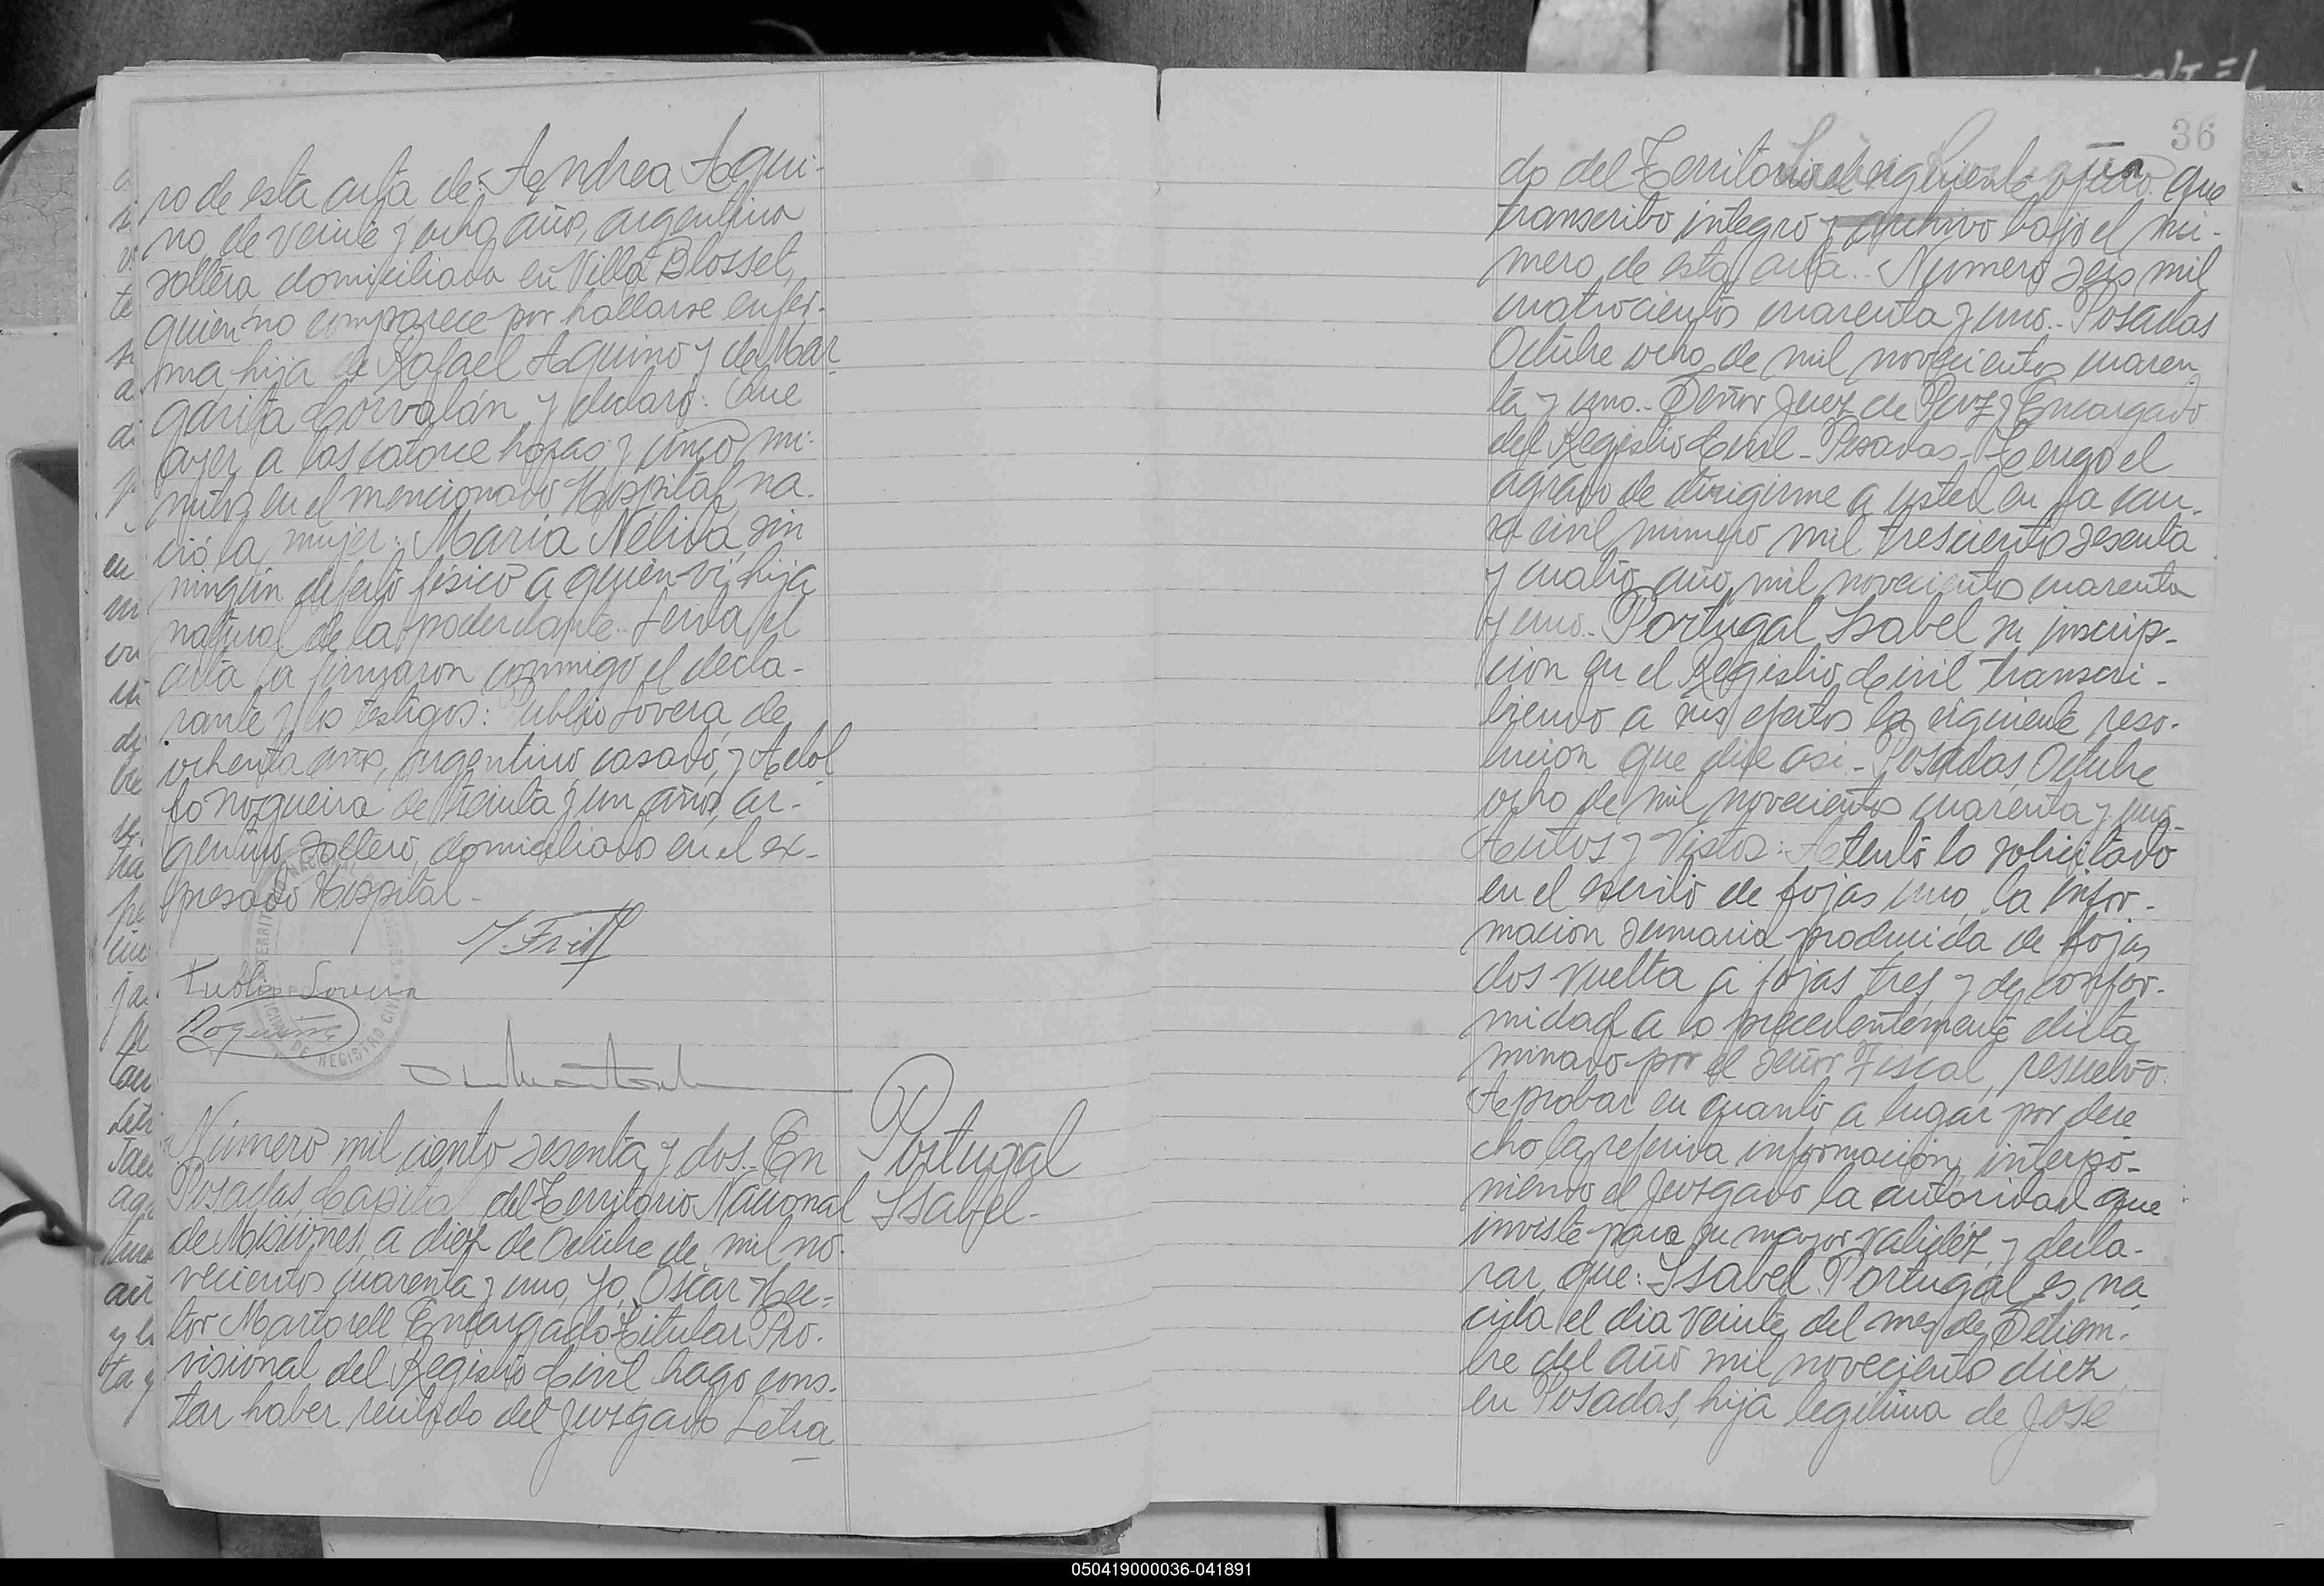 ro de esta acta de: Andrea Aqui-
no, de veinte y ocho años, argentina
soltera domiciliada en Villa Blosset,
quien no comparece por hallarse enfer-
ma, hija de Rafael Aquino y de Mar
garita Corvalán y declaró: Que
ayer a las catorce horas y cinco mi-
nutos en el mencionado Hospital na-
ció la mujer: María Nélida, sin
ningún defecto físico a quien ví, hija
natural de la poderdante. Leida el
acta la firmaron conmigo el decla-
rante y los testigos: Publio Lovera, de
ochenta años, argentino, casado, y Adol
fo Nogueira de treinta y un años, ar-
gentino soltero, domiciliado en el ex-
presado Hospital-
Publio Lovera
Portugal
Isabel-
Número mil ciento sesenta y dos. En
Posadas, Capital del Territorio Nacional
de Misiones, a diez de Octubre de mil no-
vecientos cuarenta y uno, Yo, Oscar Hec-
tor Martorell Encargado Titular Pro-
visional del Registro Civil hago cons-
tar haber recibido del Juzgado Letra
36
do del Territorio el siguiente oficio que
transcribo integro y archivo bajo el nú-
mero de esta acta.. Numero seis mil
cuatrocientos cuarenta y uno.- Posadas
Octubre ocho de mil novecientos cuaren
ta y uno.- Señor Juez de Paz y Encargado
del Registro Civil - Posadas - Tengo el
agrado de dirigirme a usted en la cau-
sa civil numero mil trescientos sesenta
y cuatro año mil novecientos cuarenta
y uno.- Portugal Isabel su inscrip-
cion en el Registro Civil transcri-
biendo a sus efectos la siguiente reso-
lucion que dice asi - Posadas, Octubre
ocho de mil novecientos cuarenta y uno-
Autos y Vistos: Atento lo solicitado
en el escrito de fojas uno, la infor-
macion sumaria producida de fojas
dos vuelta a fojas tres y de confor-
midad a lo precedentemente dicta
minado por el señor Fiscal, resuelvo:
Aprobar en cuanto a lugar por dere
cho la referida informacion, interpo-
niendo el Juzgado la autoridad que
inviste para su mayor validéz y decla-
rar que: Isabel Portugal es na
cida el dia veinte del mes de Setiem-
bre del año mil novecientos diez
en Posadas, hija legitima de José
050419000036-041891